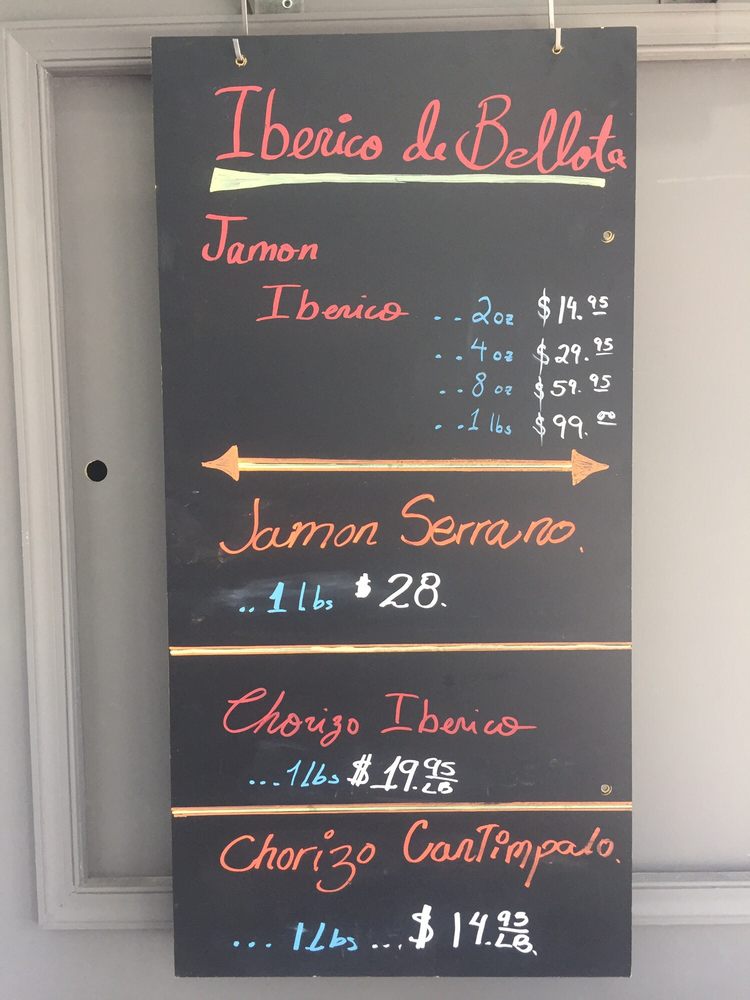 Iberico de Bellota
Jamon
Iberico .. 2 oz $14.95
.. 4 oz $29.95
.. 8 oz $59.95
.. 1 lbs $99.00
Jamon Serrano.
.. 1 lbs $28.
Chorizo Iberico
... 1 lbs $19.95 LB
Chorizo Cantimpalo.
... 1 Lbs ... $14.95 LB.